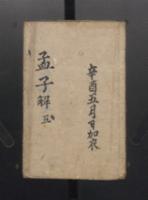 辛酉五月日加衣
孟子解五